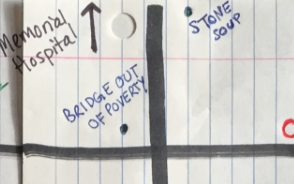 Memorial
Hospital
STONE
SOUP
BRIDGE OUT
OF POVERTY